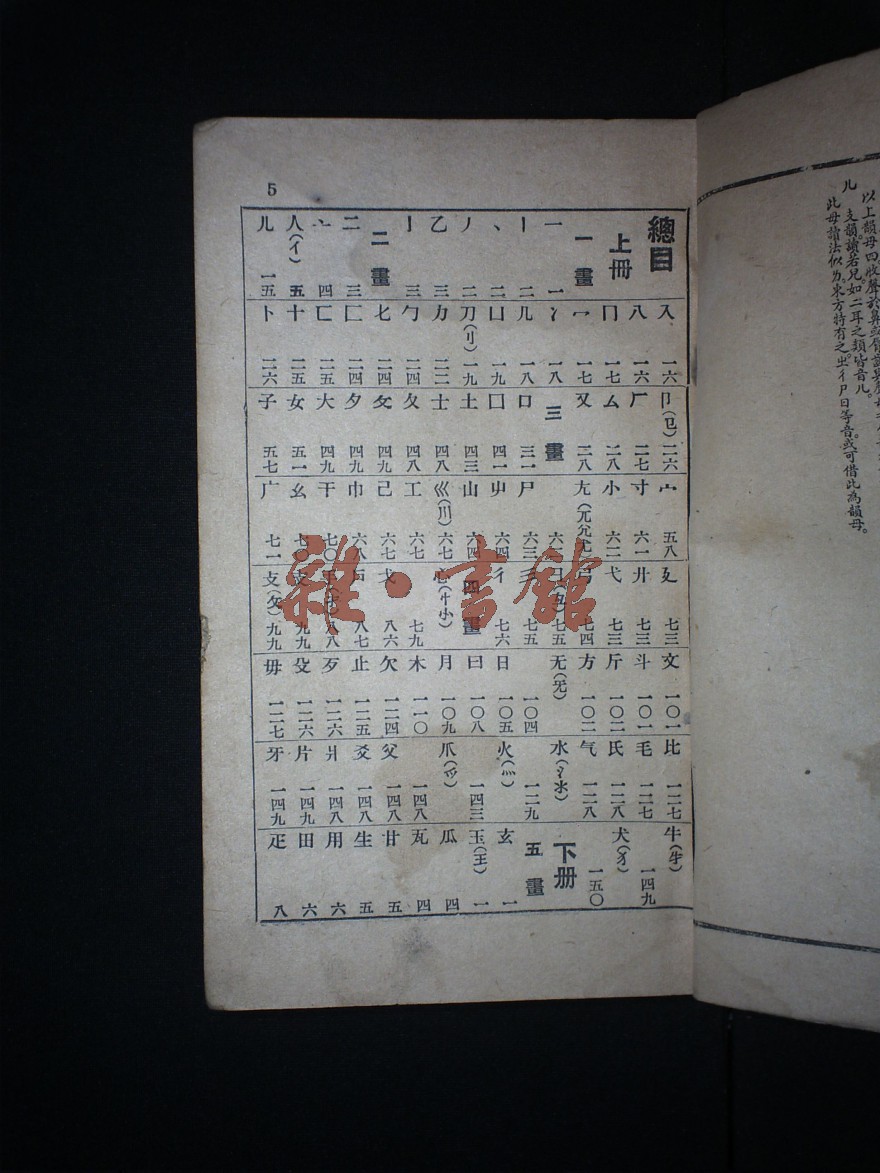 以上韻母四。收聲於鼻
儿 支韻。讀若兒。如二耳之類皆音儿。
此母讀法似ㄦ。東方特有之。ㄓㄔㄕㄖ等音。或可借此為韻母。
5
總目
上冊
一畫
一 一
丨 二
丶 二
丿 二
乙 三
亅 三
二畫
二 三
亠 四
人(亻) 五
儿 一五
入 一六
八 一六
冂 一七
冖 一七
冫 一八
几 一八
凵 一九
刀(刂) 一九
力 二二
勹 二四
匕 二四
匚 二四
匸 二五
十 二五
卜 二六
卩(㔾) 二六
厂 二七
厶 二八
又 二八
三畫
口 三一
囗 四一
土 四三
士 四八
夂 四八
夊 四九
夕 四九
大 四九
女 五一
子 五七
宀 五八
寸 六一
小 六二
尢(兀尣尤) 六二
尸 六三
屮 六四
山 六四
巛(川) 六七
工 六七
己 六七
巾 六八
干 七〇
幺 七〇
广 七一
廴 七三
廾 七三
弋 七三
弓 七四
彐(彑) 七五
彡 七五
彳 七六
四畫
心(忄㣺) 七九
戈 八六
戶 八七
手(扌) 八八
支 九九
攴(攵) 九九
文 一〇一
斗 一〇一
斤 一〇二
方 一〇二
无(旡) 一〇四
日 一〇五
曰 一〇八
月 一〇九
木 一一〇
欠 一二四
止 一二五
歹 一二六
殳 一二六
毋 一二七
比 一二七
毛 一二七
氏 一二八
气 一二八
水(氵氺) 一二九
火(灬) 一四三
爪(爫) 一四八
父 一四八
爻 一四八
爿 一四八
片 一四九
牙 一四九
牛(牜) 一四九
犬(犭) 一五〇
下冊
五畫
玄 一
玉(王) 一
瓜 四
瓦 四
甘 五
生 五
用 六
田 六
疋 八
雜·書館